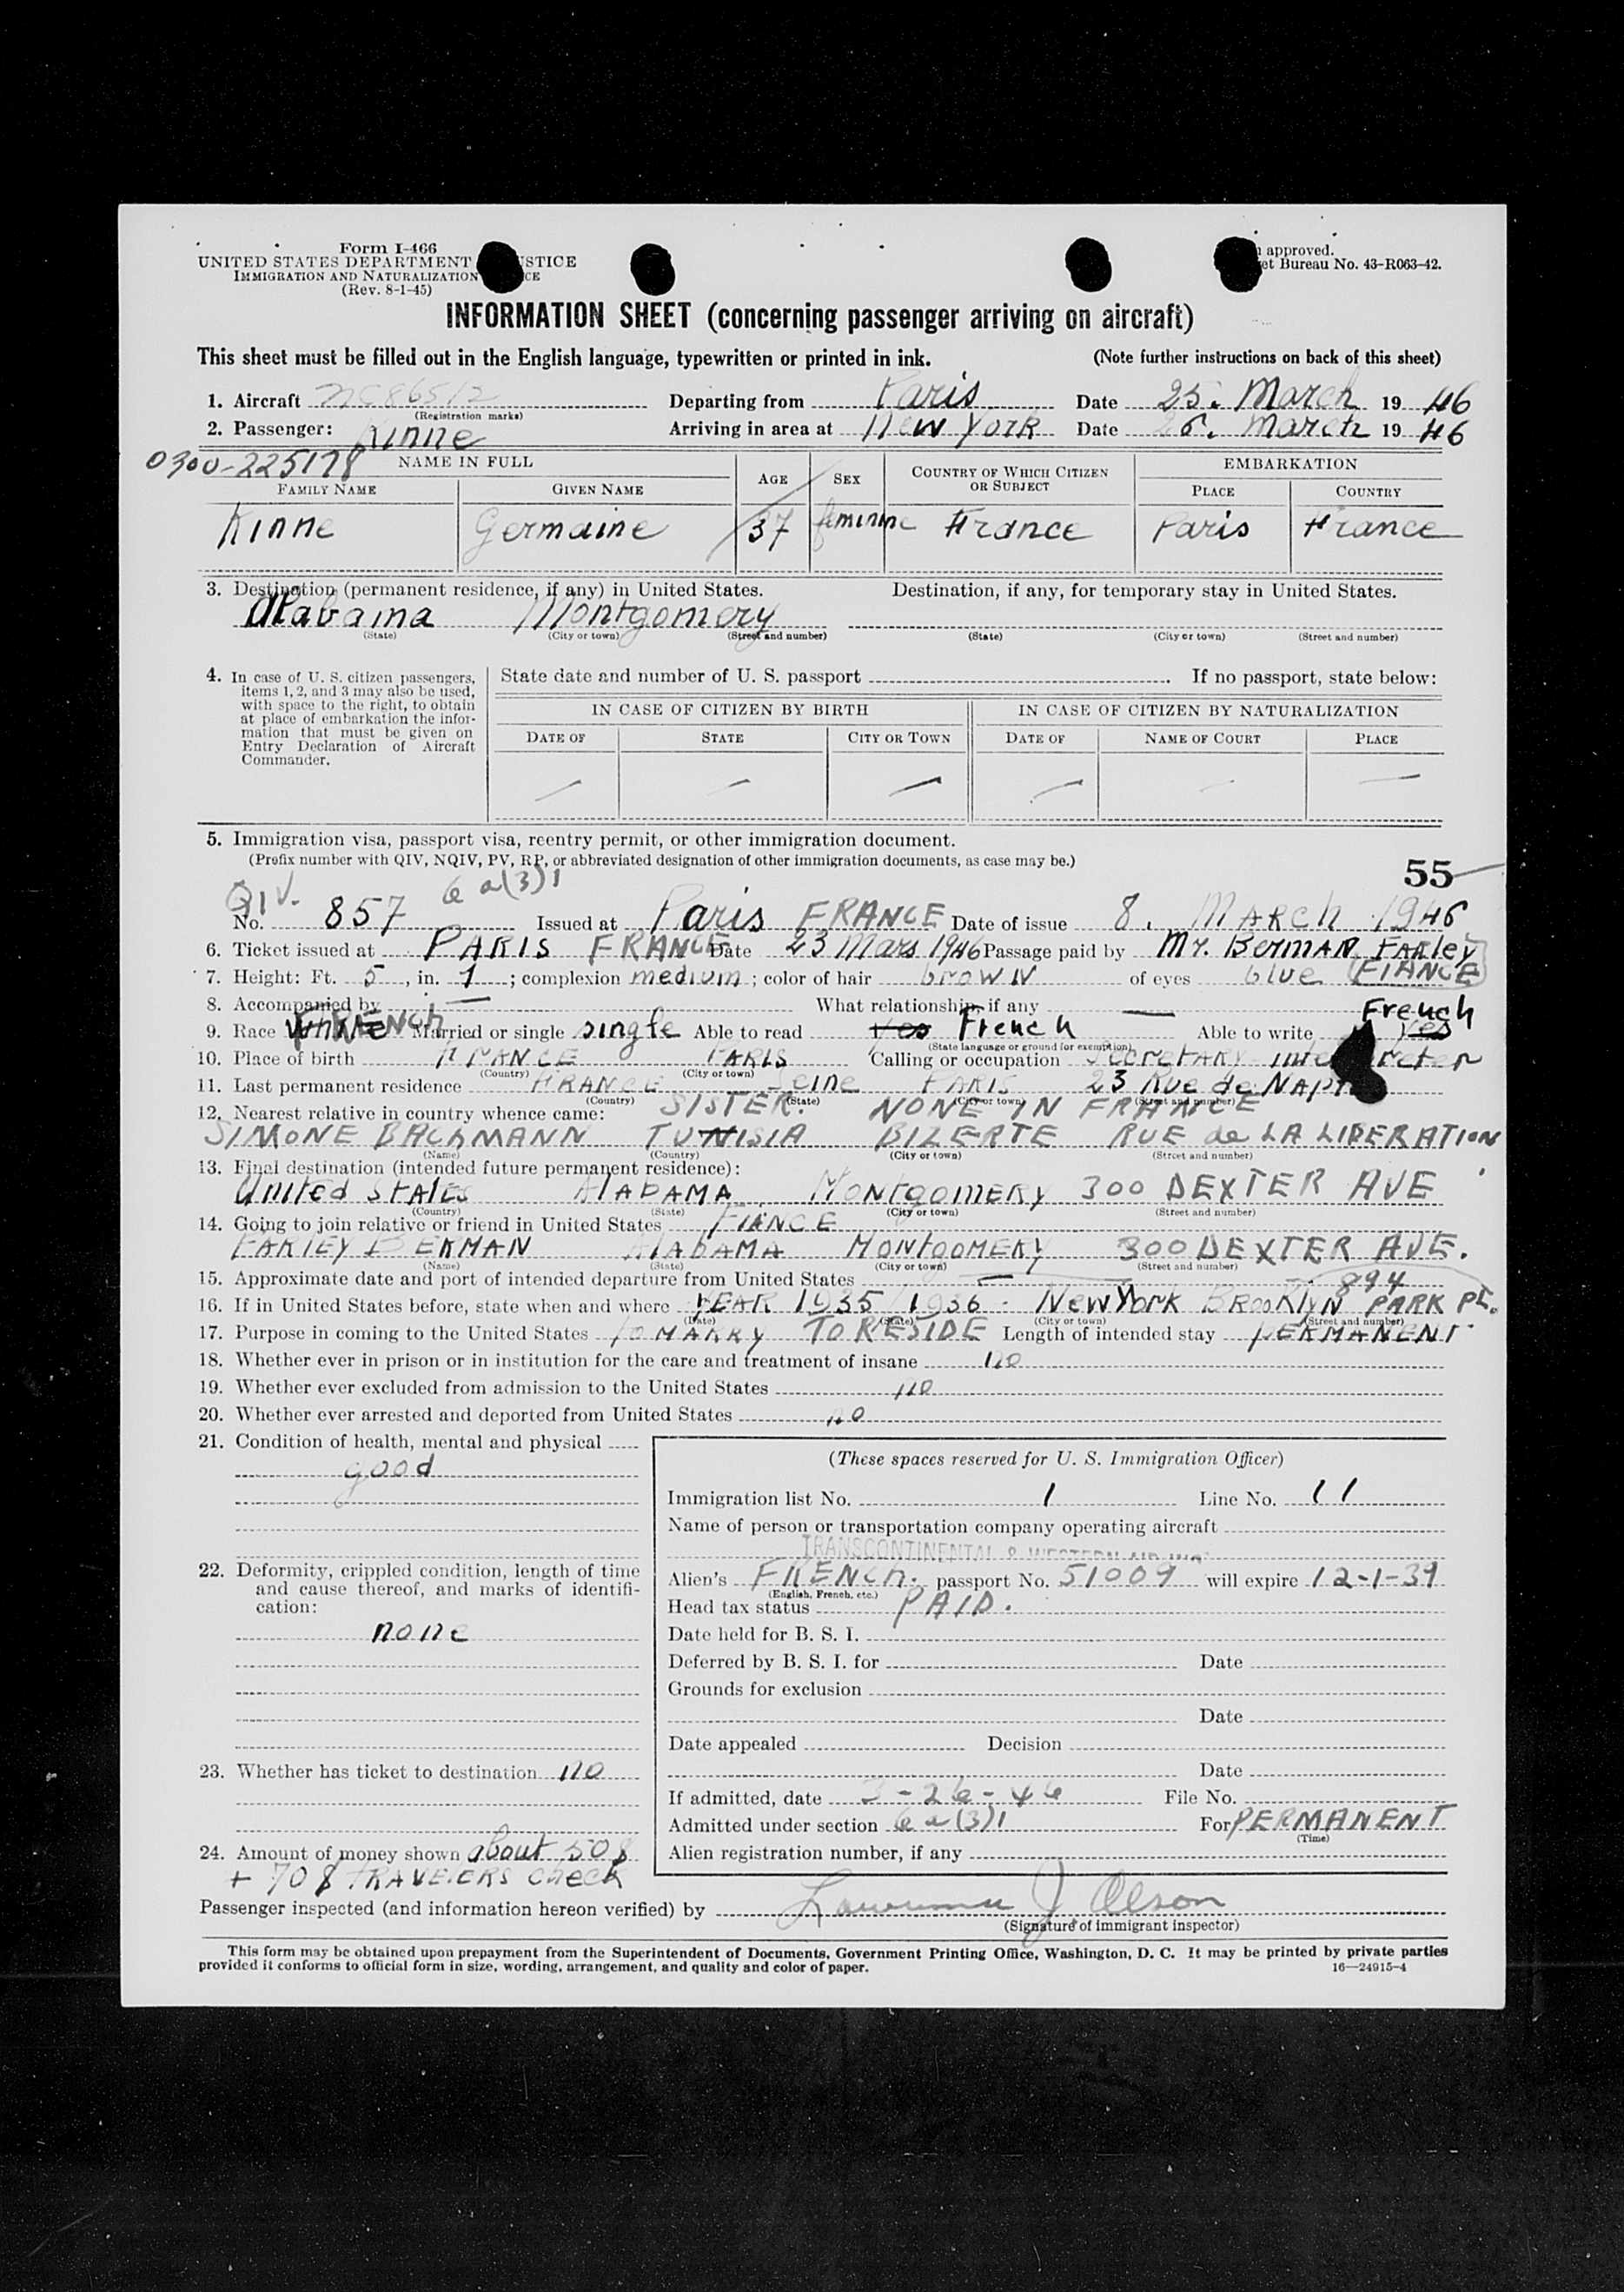 Form I-466
UNITED STATES DEPARTMENT STICE
IMMIGRATION AND NATURALIZATION CE
(Rev. 8-1-45)
approved.
et Bureau No. 43-R063-42.
INFORMATION SHEET (concerning passenger arriving on aircraft)
This sheet must be filled out in the English language, typewritten or printed in ink. (Note further instructions on back of this sheet)
1. Aircraft NC86512 Departing from Paris Date 25. March 1946
(Registration marks)
2. Passenger: Kinne Arriving in area at New York Date 26. March 1946
0300-225178 NAME IN FULL AGE SEX COUNTRY OF WHICH CITIZEN OR SUBJECT EMBARKATION
FAMILY NAME GIVEN NAME PLACE COUNTRY
Kinne Germaine 37 feminine France Paris France
3. Destination (permanent residence, if any) in United States. Destination, if any, for temporary stay in United States.
Alabama Montgomery
(State) (City or town) (Street and number) (State) (City or town) (Street and number)
4. In case of U. S. citizen passengers, items 1, 2, and 3 may also be used, with space to the right, to obtain at place of embarkation the information that must be given on Entry Declaration of Aircraft Commander.
State date and number of U. S. passport If no passport, state below:
IN CASE OF CITIZEN BY BIRTH IN CASE OF CITIZEN BY NATURALIZATION
DATE OF STATE CITY OR TOWN DATE OF NAME OF COURT PLACE
— — — — — —
5. Immigration visa, passport visa, reentry permit, or other immigration document.
(Prefix number with QIV, NQIV, PV, RP, or abbreviated designation of other immigration documents, as case may be.)
55
QIV. 6 a(3)1
No. 857 Issued at Paris FRANCE Date of issue 8. MARCH 1946
6. Ticket issued at PARIS FRANCE Date 23 Mars 1946 Passage paid by Mr. BERMAN FARLEY
7. Height: Ft. 5, in. 1; complexion medium; color of hair brown of eyes blue (FIANCE)
8. Accompanied by — What relationship, if any —
9. Race White FRENCH Married or single single Able to read Yes French Able to write Yes French
(State language or ground for exemption)
10. Place of birth FRANCE PARIS Calling or occupation Secretary inte reter
(Country) (City or town)
11. Last permanent residence FRANCE Seine PARIS 23 Rue de NAP
(Country) (State) (City or town) (Street and number)
12. Nearest relative in country whence came: SISTER. NONE IN FRANCE
SIMONE BACHMANN TUNISIA BIZERTE RUE de LA LIBERATION
(Name) (Country) (City or town) (Street and number)
13. Final destination (intended future permanent residence):
United States ALABAMA MONTGOMERY 300 DEXTER AVE
(Country) (State) (City or town) (Street and number)
14. Going to join relative or friend in United States FIANCE
FARLEY BERMAN ALABAMA MONTGOMERY 300 DEXTER AVE.
(Name) (State) (City or town) (Street and number)
15. Approximate date and port of intended departure from United States —
894
16. If in United States before, state when and where YEAR 1935/1936 - New York BROOKLYN PARK PL.
(Date) (State) (City or town) (Street and number)
17. Purpose in coming to the United States TO MARRY TO RESIDE Length of intended stay PERMANENT
18. Whether ever in prison or in institution for the care and treatment of insane no
19. Whether ever excluded from admission to the United States no
20. Whether ever arrested and deported from United States no
21. Condition of health, mental and physical
good
22. Deformity, crippled condition, length of time and cause thereof, and marks of identification:
none
23. Whether has ticket to destination no
24. Amount of money shown about 50$
+ 70$ TRAVELERS check
(These spaces reserved for U. S. Immigration Officer)
Immigration list No. 1 Line No. 11
Name of person or transportation company operating aircraft
TRANSCONTINENTAL & WESTERN AIR INC.
Alien's FRENCH. passport No. 51009 will expire 12-1-39
(English, French, etc.)
Head tax status PAID.
Date held for B. S. I.
Deferred by B. S. I. for Date
Grounds for exclusion
Date
Date appealed Decision
Date
If admitted, date 3-26-46 File No.
Admitted under section 6a(3)1 For PERMANENT
(Time)
Alien registration number, if any
Passenger inspected (and information hereon verified) by Lawrence J Olson
(Signature of immigrant inspector)
This form may be obtained upon prepayment from the Superintendent of Documents, Government Printing Office, Washington, D. C. It may be printed by private parties
provided it conforms to official form in size, wording, arrangement, and quality and color of paper. 16—24915-4